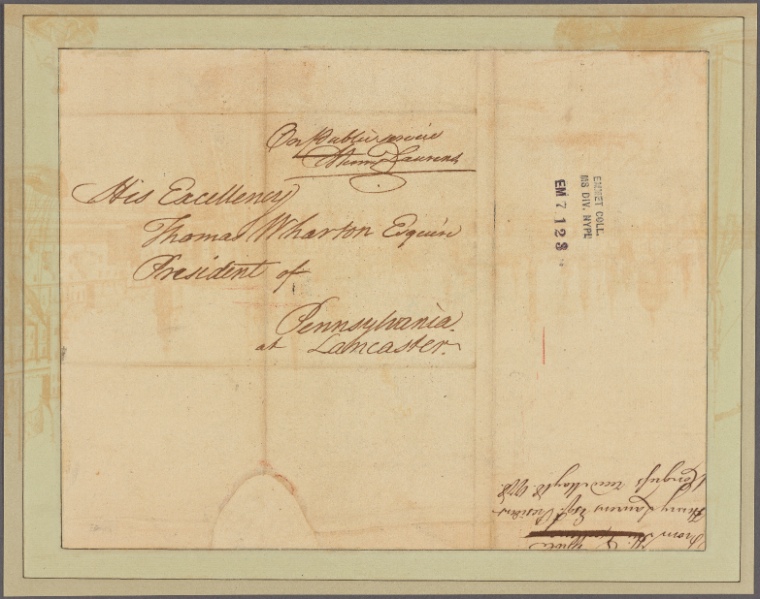 On Public service
Henry Laurens
His Excellency
Thomas Wharton Esquire
President of
Pennsylvania.
at Lancaster.
EMMET COLL.
MS DIV. NYPL
EM 7123
From His Excellency
Henry Laurens Esqr. President
Congress recd. May 18 1778.